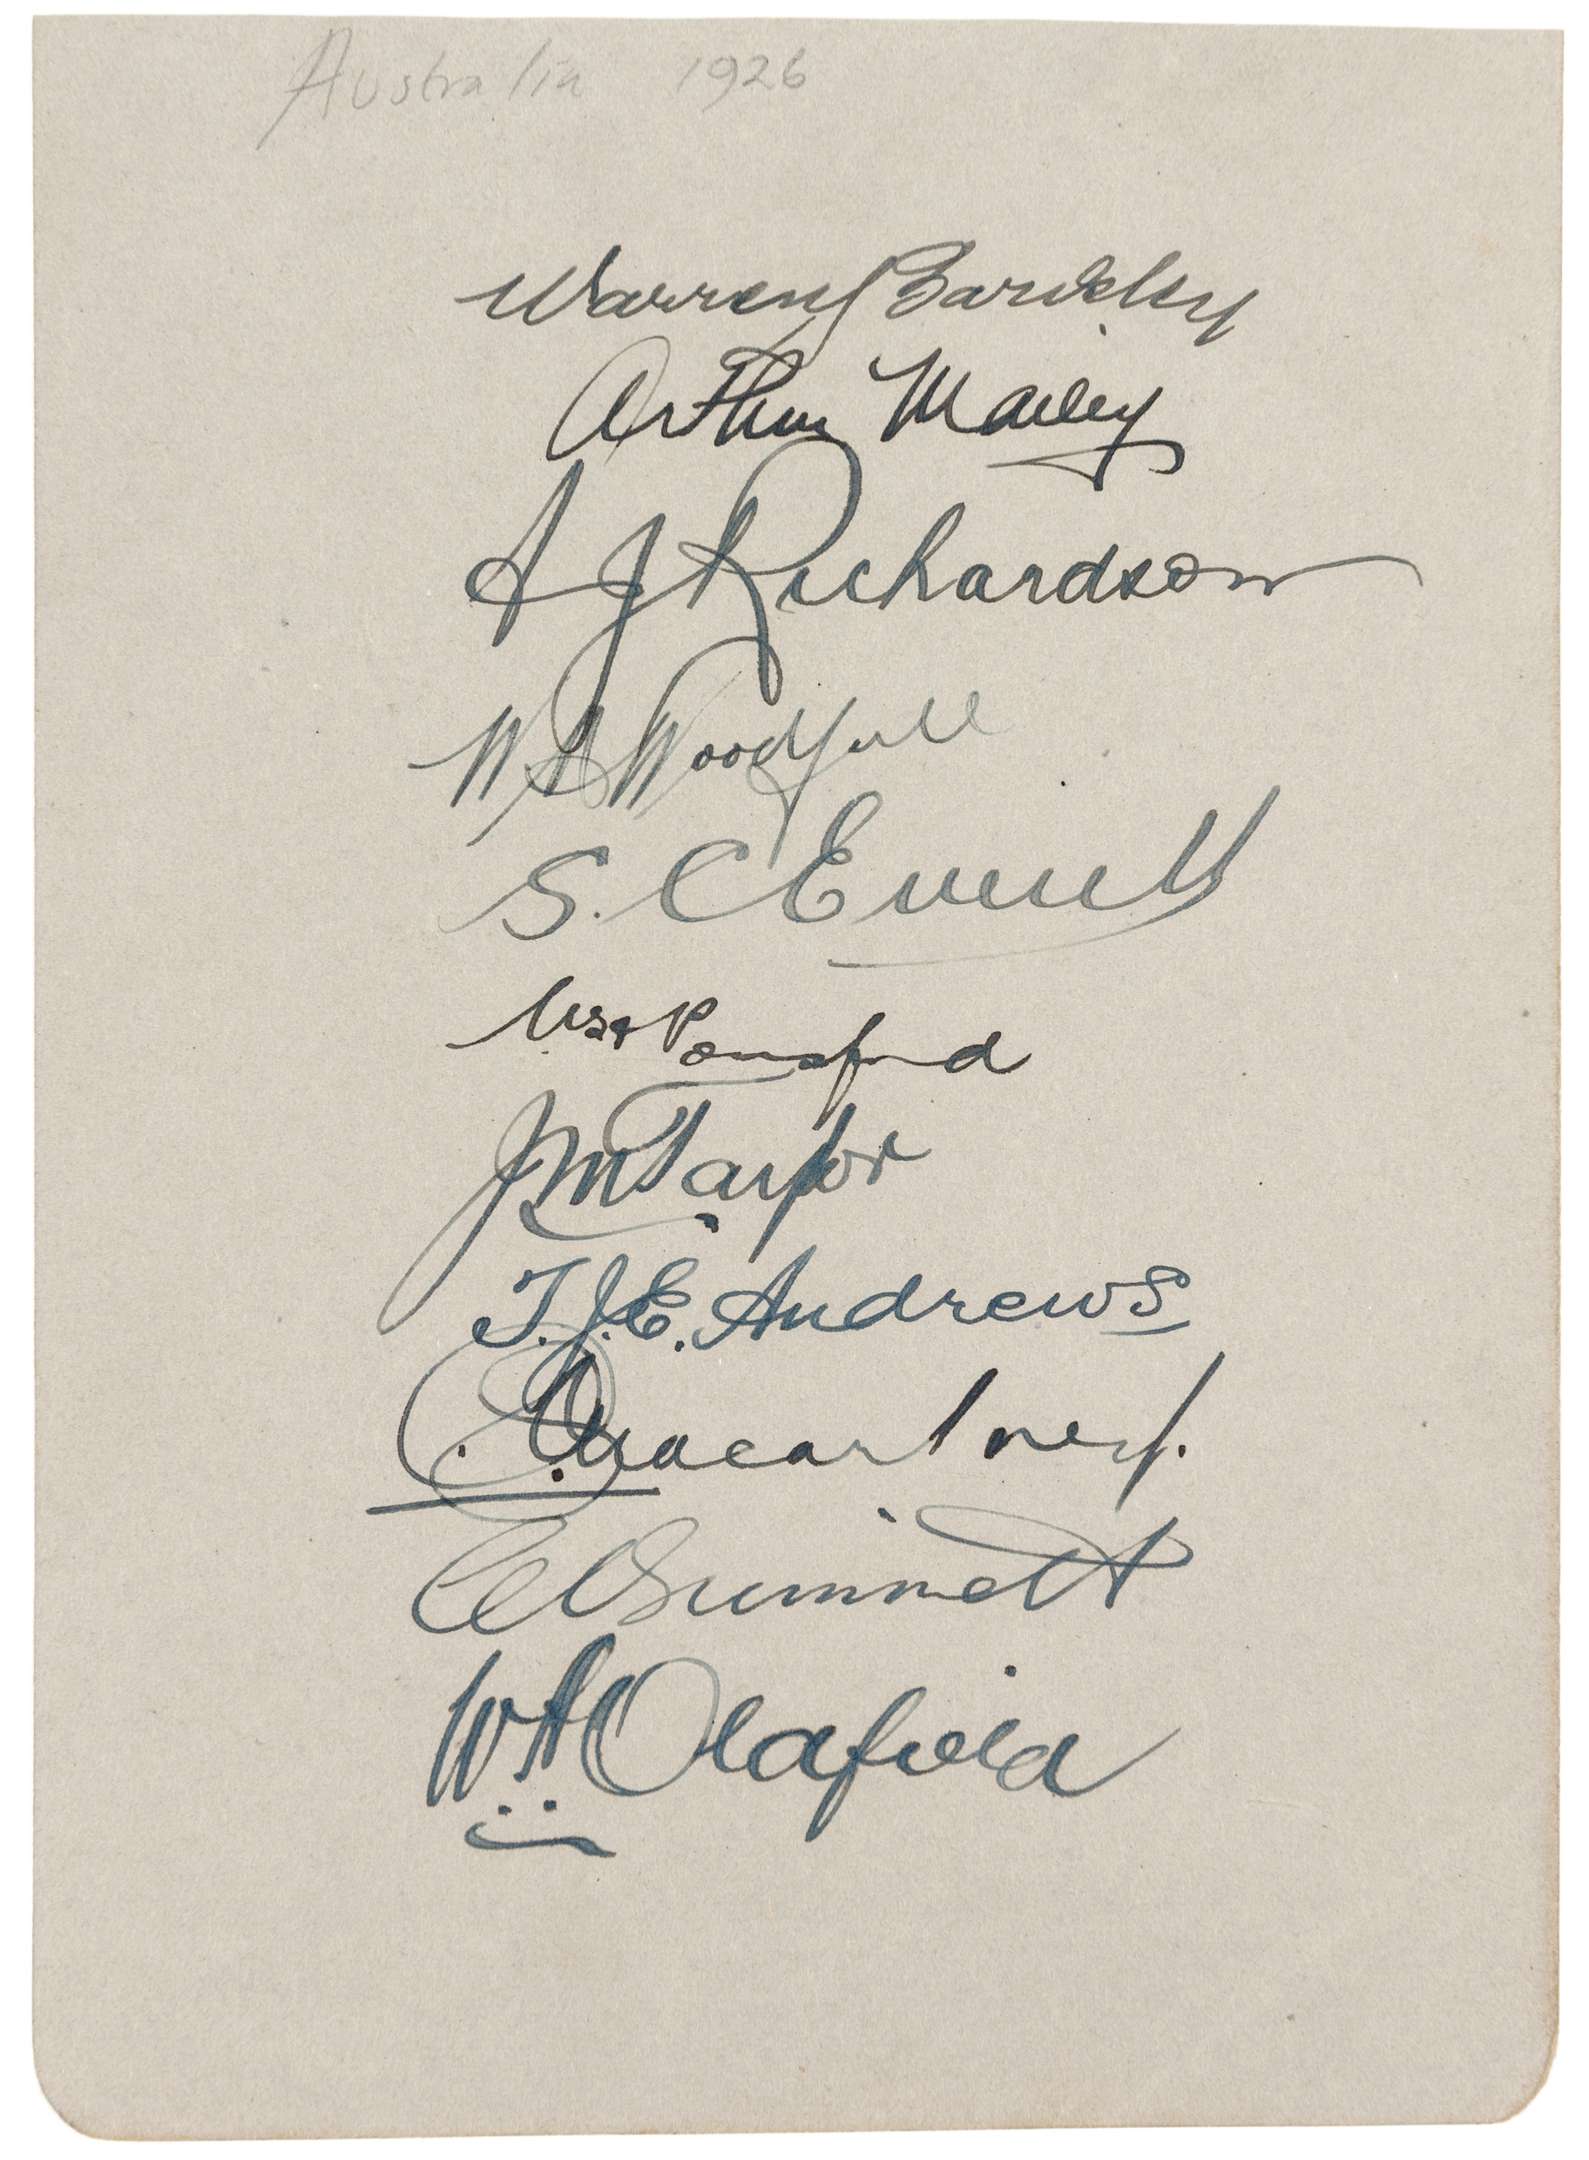 Australia 1926
Warren Bardsley
Arthur Mailey
A J Richardson
W M Woodfull
S. C Everett
W H Ponsford
J M Taylor
T. J. E. Andrews
C. G. Macartney.
C V Grimmett
W A Oldfield